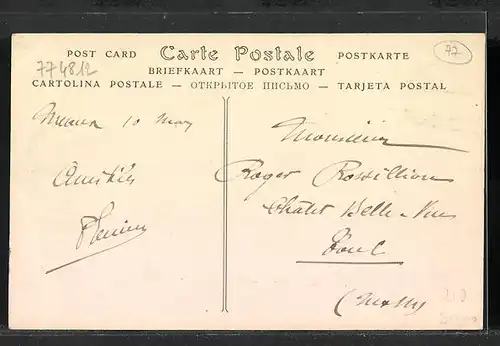 POST CARD Carte Postale POSTKARTE
BRIEFKAART — POSTKAART
CARTOLINA POSTALE — ОТКРЫТОЕ ПИСЬМО — TARJETA POSTAL
774812
77
10 May
Amitiés
Monsieur
Roger Rossillion
Chalet Belle-Vue